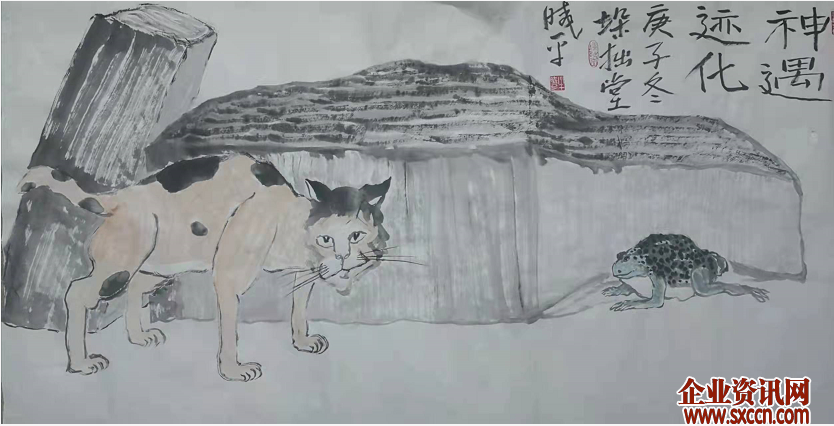 神遇
迹化
庚子冬
垛拙堂
晓平
企业资讯网
www.sxccn.com